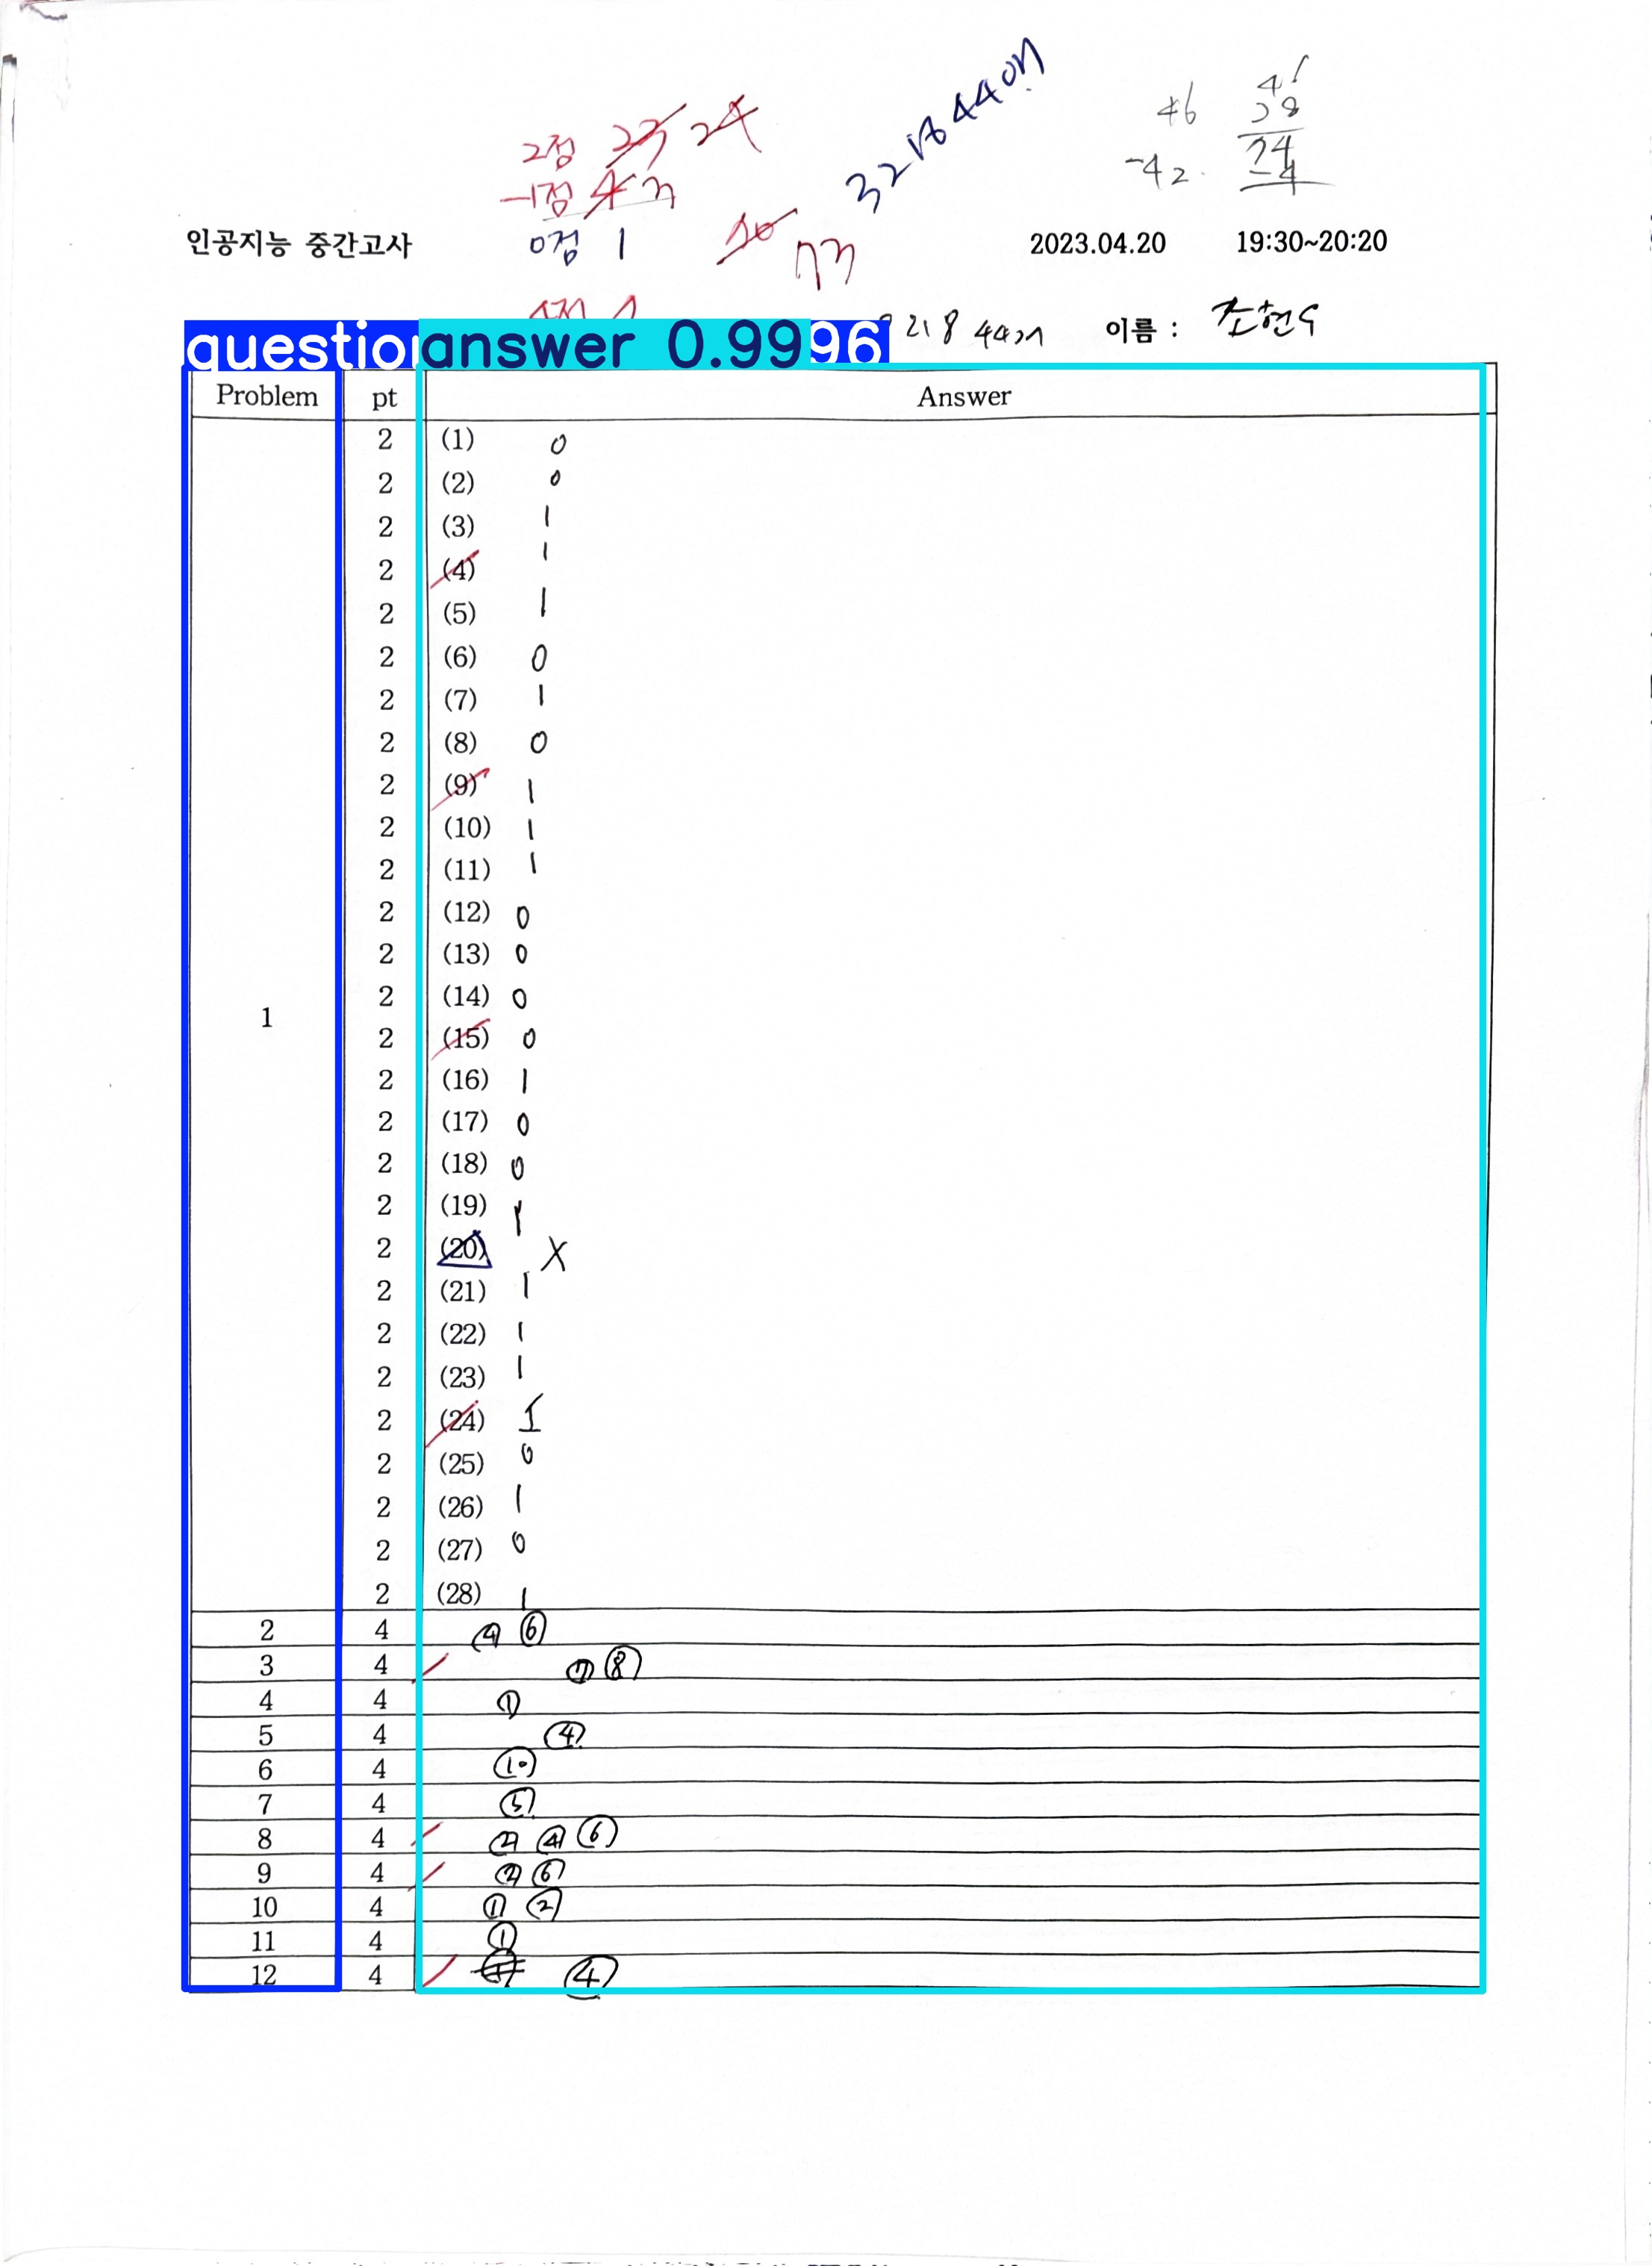 2점 23 24
-1점 4 3
0점 1
73
46
-42
74
-4
인공지능 중간고사 2023.04.20 19:30~20:20
이름 : 조현수
question answer 0.99 96
Problem pt Answer
2 (1) 0
2 (2) 0
2 (3) 1
2 (4) 1
2 (5) 1
2 (6) 0
2 (7) 1
2 (8) 0
2 (9) 1
2 (10) 1
2 (11) 1
2 (12) 0
2 (13) 0
2 (14) 0
1
2 (15) 0
2 (16) 1
2 (17) 0
2 (18) 0
2 (19) 1
2 (20) X
2 (21) 1
2 (22) 1
2 (23) 1
2 (24) 1
2 (25) 0
2 (26) 1
2 (27) 0
2 (28) 1
2 4 ④ ⑥
3 4 ⑦ ⑧
4 4 ①
5 4 ④
6 4 ⑩
7 4 ⑤
8 4 ② ④ ⑥
9 4 ② ⑥
10 4 ① ②
11 4 ①
12 4 ④